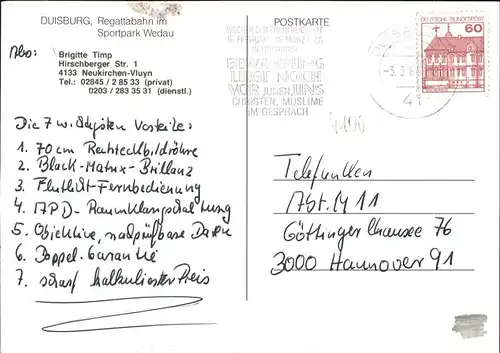 DUISBURG, Regattabahn im
Sportpark Wedau
Abo:
Brigitte Timp
Hirschberger Str. 1
4133 Neukirchen-Vluyn
Tel.: 02845 / 2 85 33 (privat)
0203 / 283 35 31 (dienstl.)
Die 7 wichtigsten Vorteile:
1. 70 cm Rechteckbildröhre
2. Black-Matrix-Brillanz
3. Flutlicht-Fernbedienung
4. APD-Raumklangschaltung
5. Objektive, nachprüfbare Daten
6. Doppel-Garantie
7. scharf kalkulierter Preis
POSTKARTE
BEWAHRUNG
LIEGT NOCH
VOR JUDEN, UNS
CHRISTEN, MUSLIME
IM GESPRÄCH
41
DEUTSCHE BUNDESPOST
60
Telefunken
Abt. M 11
Göttinger Chaussee 76
3000 Hannover 91